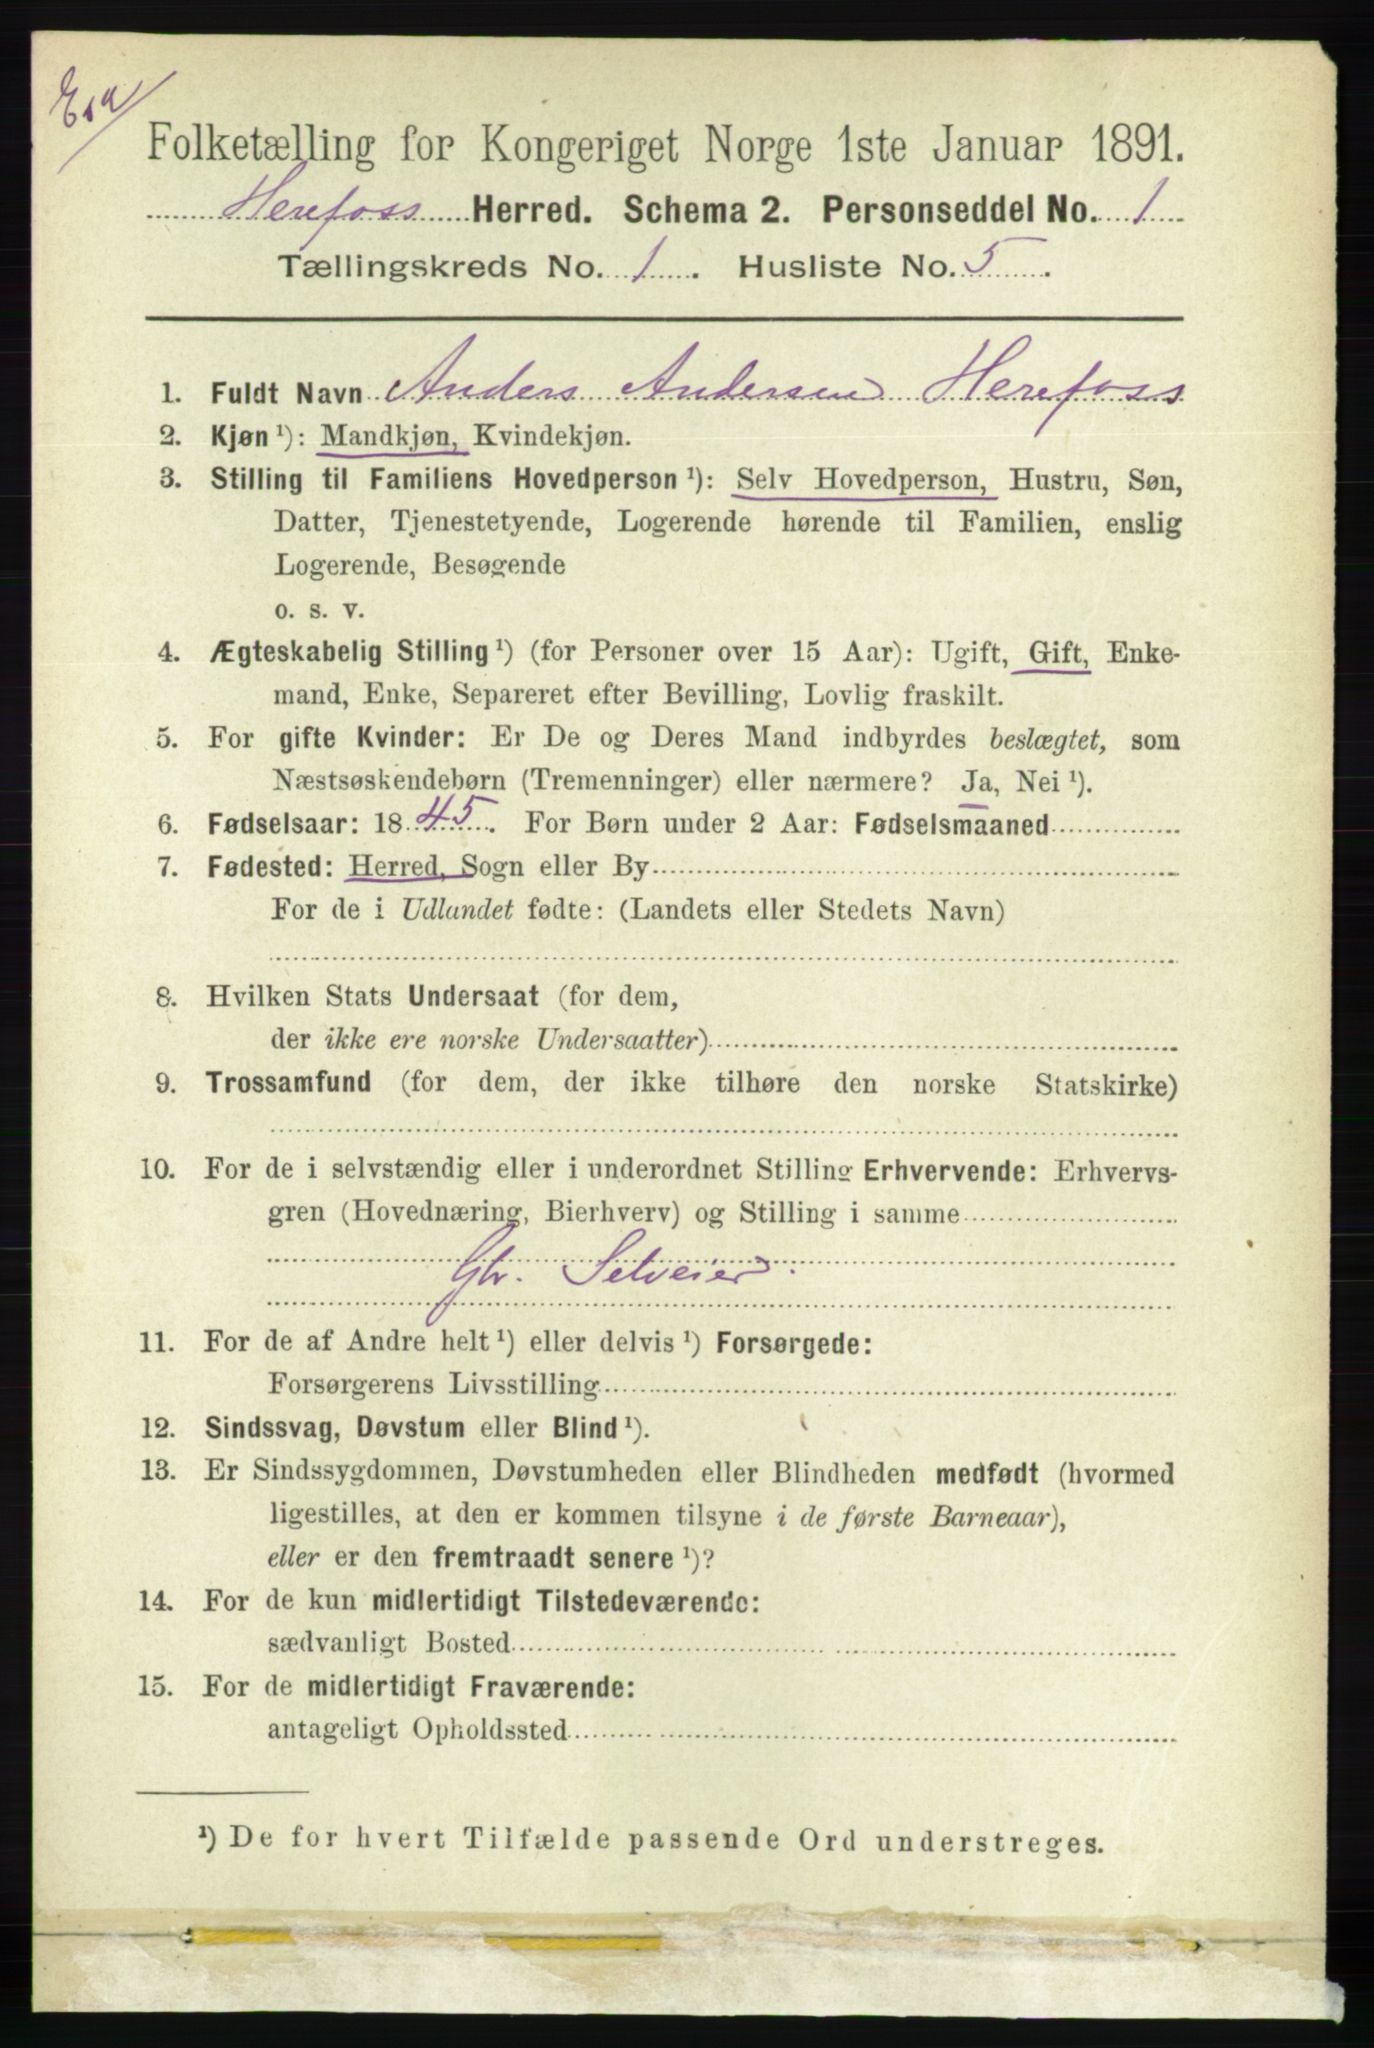 Folketælling for Kongeriget Norge 1ste Januar 1891.
Herefoss Herred. Schema 2. Personseddel No. 1
Tællingskreds No. 1. Husliste No. 5.
1. Fuldt Navn Anders Andersen Herefoss
2. Kjøn ¹): Mandkjøn, Kvindekjøn.
3. Stilling til Familiens Hovedperson ¹): Selv Hovedperson, Hustru, Søn,
Datter, Tjenestetyende, Logerende hørende til Familien, enslig
Logerende, Besøgende
o. s. v.
4. Ægteskabelig Stilling ¹) (for Personer over 15 Aar): Ugift, Gift, Enke-
mand, Enke, Separeret efter Bevilling, Lovlig fraskilt.
5. For gifte Kvinder: Er De og Deres Mand indbyrdes beslægtet, som
Næstsøskendebørn (Tremenninger) eller nærmere? Ja, Nei ¹).
6. Fødselsaar: 1845. For Børn under 2 Aar: Fødselsmaaned
7. Fødested: Herred, Sogn eller By
For de i Udlandet fødte: (Landets eller Stedets Navn)
8. Hvilken Stats Undersaat (for dem,
der ikke ere norske Undersaatter)
9. Trossamfund (for dem, der ikke tilhøre den norske Statskirke)
10. For de i selvstændig eller i underordnet Stilling Erhvervende: Erhvervs-
gren (Hovednæring, Bierhverv) og Stilling i samme
Gbr. Selveier.
11. For de af Andre helt ¹) eller delvis ¹) Forsørgede:
Forsørgerens Livsstilling
12. Sindssvag, Døvstum eller Blind ¹).
13. Er Sindssygdommen, Døvstumheden eller Blindheden medfødt (hvormed
ligestilles, at den er kommen tilsyne i de første Barneaar),
eller er den fremtraadt senere ¹)?
14. For de kun midlertidigt Tilstedeværende:
sædvanligt Bosted
15. For de midlertidigt Fraværende:
antageligt Opholdssted
¹) De for hvert Tilfælde passende Ord understreges.